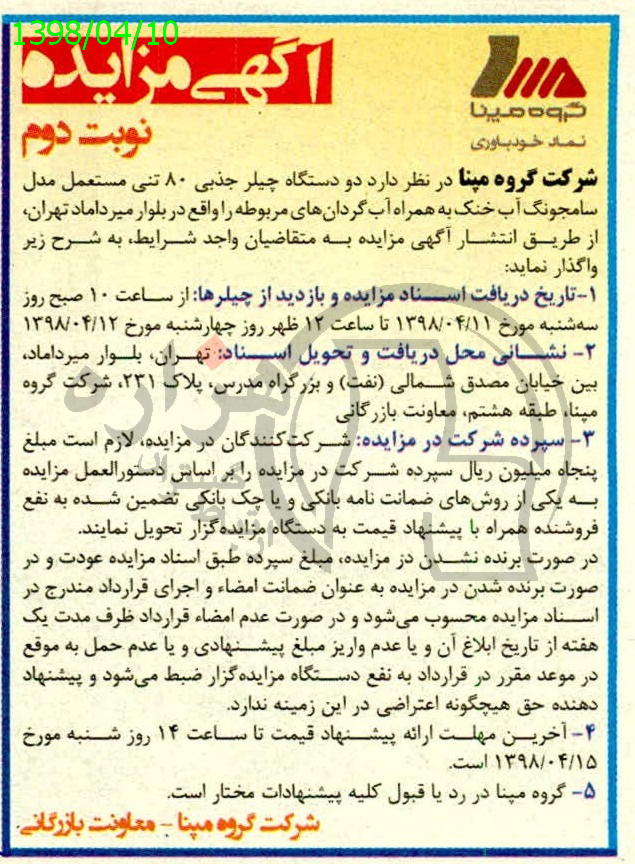 1398/04/10
آگهی مزایده
نوبت دوم
گروه مپنا
نماد خودباوری
شرکت گروه مپنا در نظر دارد دو دستگاه چیلر جذبی ۸۰ تنی مستعمل مدل
سامجونگ آب خنک به همراه آب گردان‌های مربوطه را واقع در بلوار میرداماد تهران،
از طریق انتشار آگهی مزایده به متقاضیان واجد شرایط، به شرح زیر
واگذار نماید:
۱-تاریخ دریافت اسناد مزایده و بازدید از چیلرها: از ساعت ۱۰ صبح روز
سه‌شنبه مورخ ۱۳۹۸/۰۴/۱۱ تا ساعت ۱۲ ظهر روز چهارشنبه مورخ ۱۳۹۸/۰۴/۱۲
۲- نشانی محل دریافت و تحویل اسناد: تهران، بلوار میرداماد،
بین خیابان مصدق شمالی (نفت) و بزرگراه مدرس، پلاک ۲۳۱، شرکت گروه
مپنا، طبقه هشتم، معاونت بازرگانی
۳- سپرده شرکت در مزایده: شرکت‌کنندگان در مزایده، لازم است مبلغ
پنجاه میلیون ریال سپرده شرکت در مزایده را بر اساس دستورالعمل مزایده
به یکی از روش‌های ضمانت نامه بانکی و یا چک بانکی تضمین شده به نفع
فروشنده همراه با پیشنهاد قیمت به دستگاه مزایده‌گزار تحویل نمایند.
در صورت برنده نشدن در مزایده، مبلغ سپرده طبق اسناد مزایده عودت و در
صورت برنده شدن در مزایده به عنوان ضمانت امضاء و اجرای قرارداد مندرج در
اسناد مزایده محسوب می‌شود و در صورت عدم امضاء قرارداد ظرف مدت یک
هفته از تاریخ ابلاغ آن و یا عدم واریز مبلغ پیشنهادی و یا عدم حمل به موقع
در موعد مقرر در قرارداد به نفع دستگاه مزایده‌گزار ضبط می‌شود و پیشنهاد
دهنده حق هیچگونه اعتراضی در این زمینه ندارد.
۴- آخرین مهلت ارائه پیشنهاد قیمت تا ساعت ۱۴ روز شنبه مورخ
۱۳۹۸/۰۴/۱۵ است.
۵- گروه مپنا در رد یا قبول کلیه پیشنهادات مختار است.
شرکت گروه مپنا - معاونت بازرگانی
هزاره